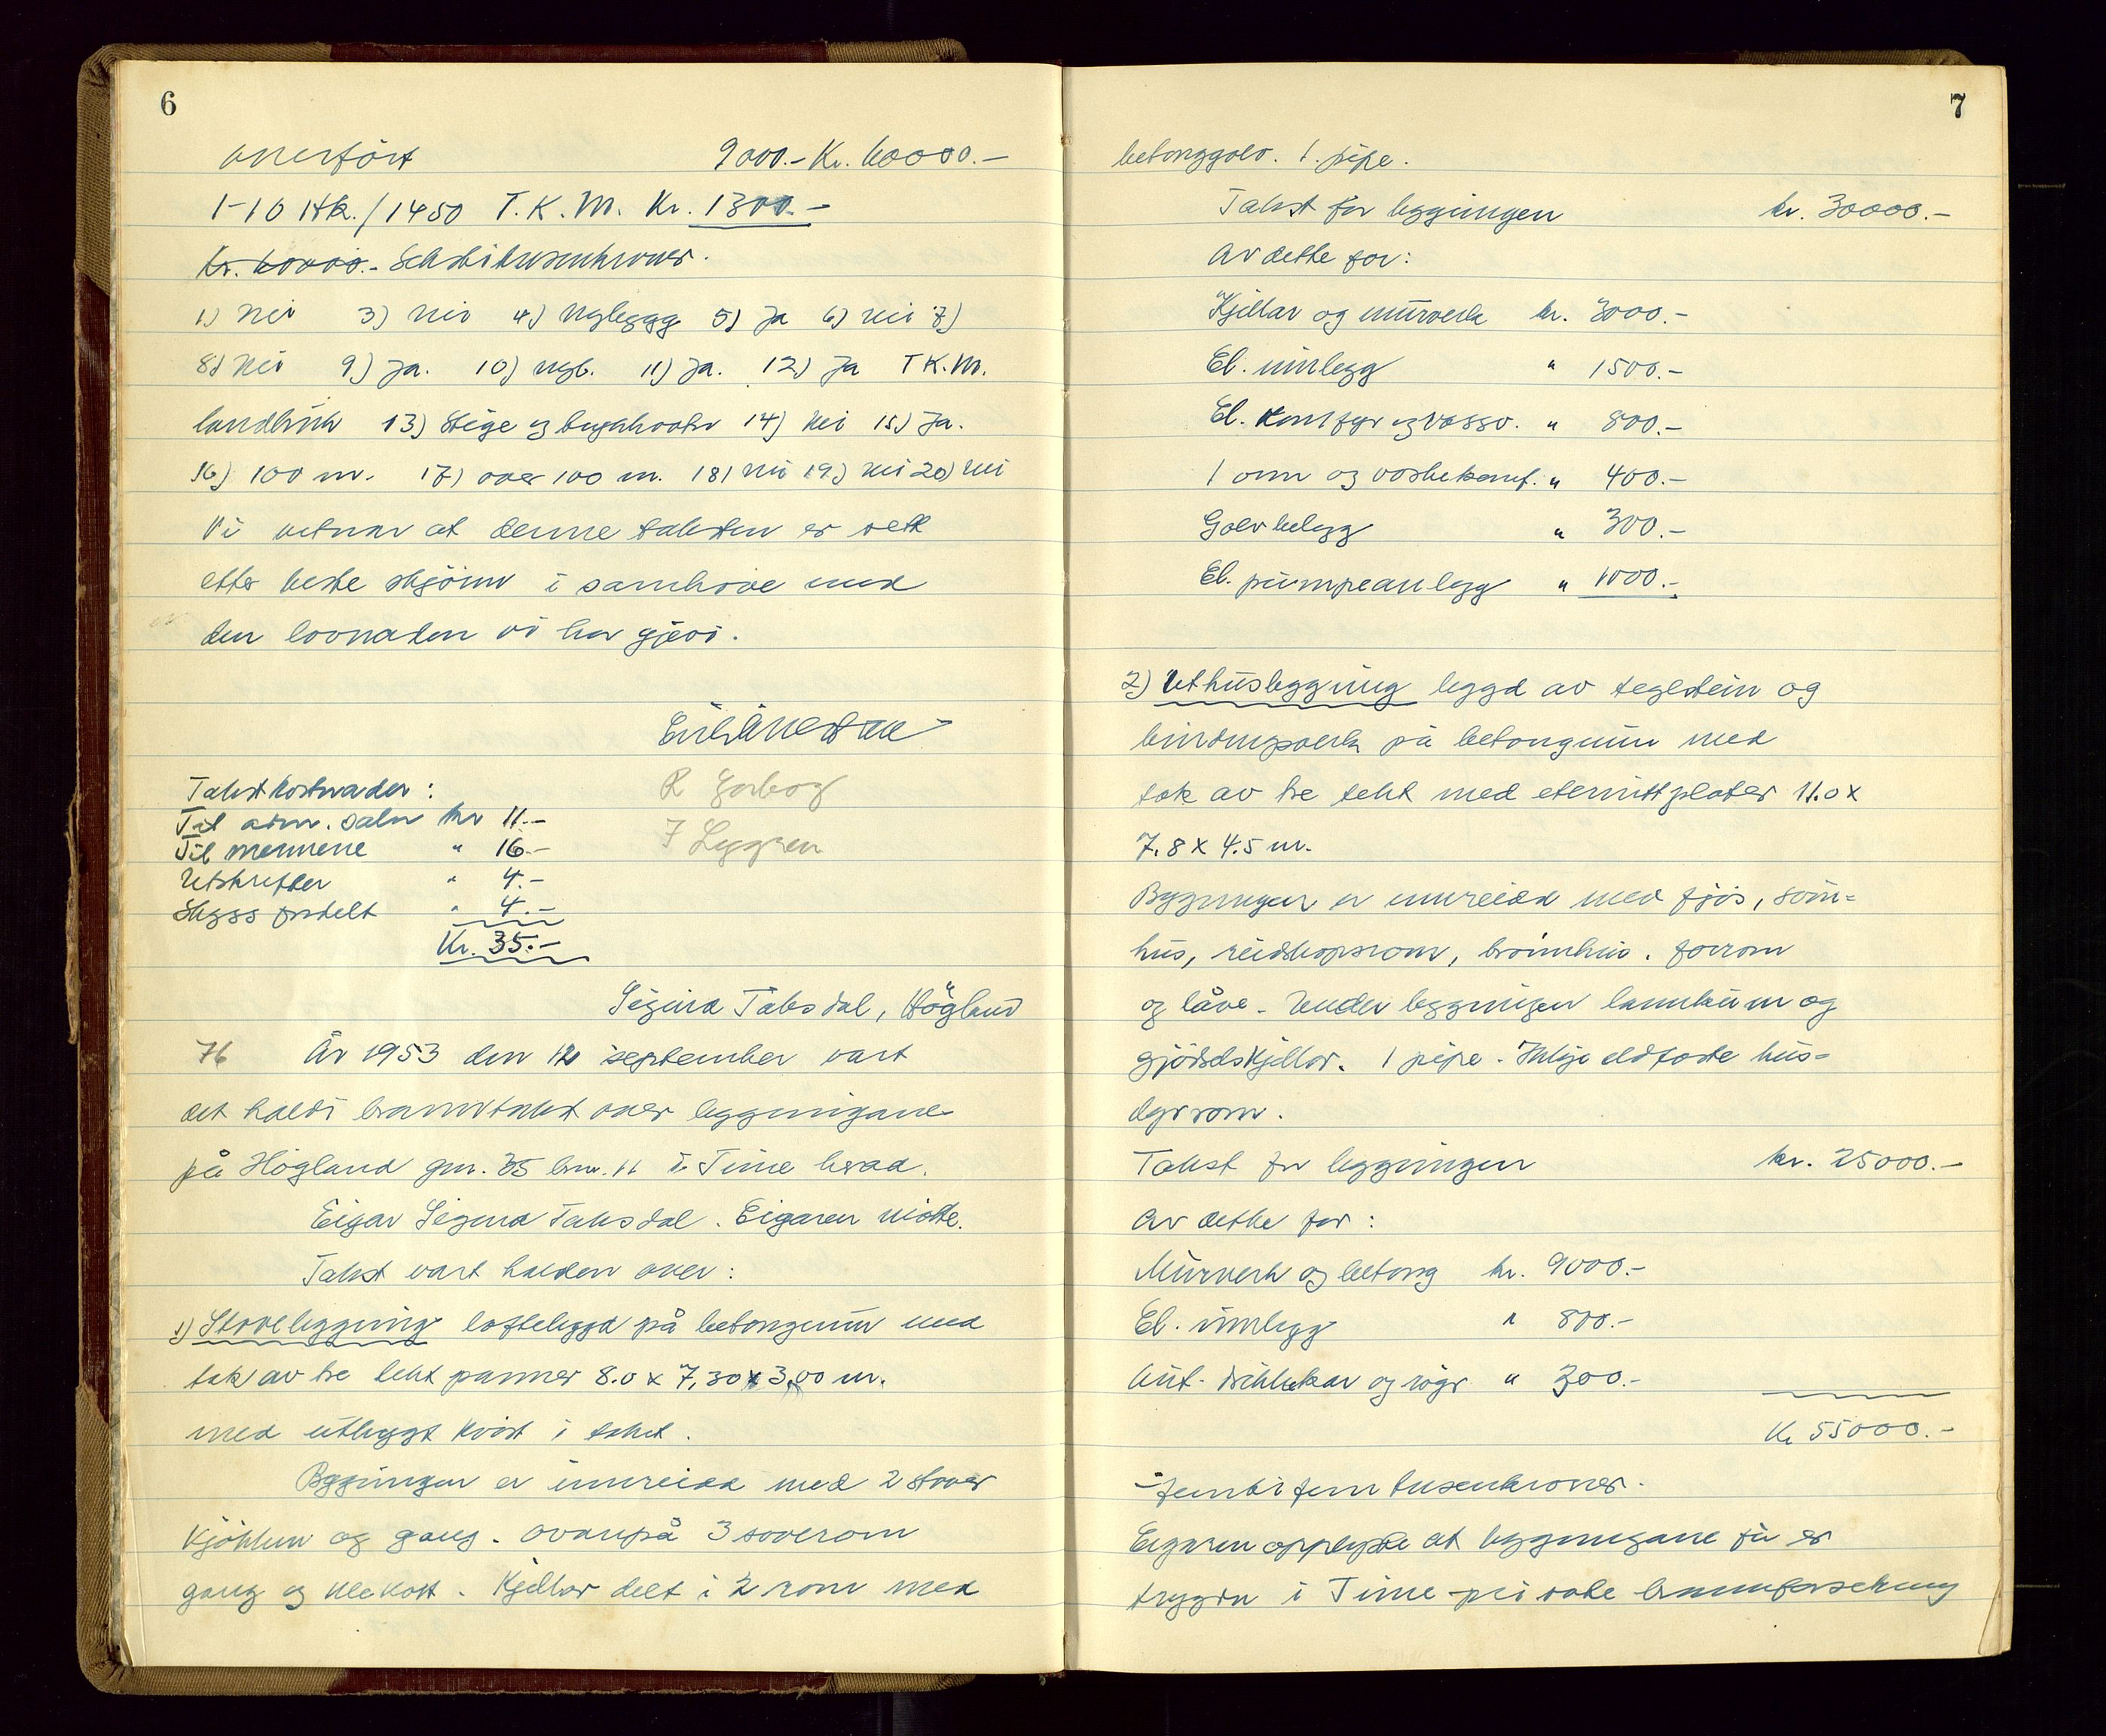 6
overført 9000.- Kr. 60000.-
1-10 Hk./1450 T.K.M. Kr. 1300.-
Kr. 60000.- Sekstitusenkroner.
1) Nei 3) Nei 4) Nybygg 5) Ja 6) Nei 7)
8) Nei 9) Ja. 10) nyb. 11) Ja. 12) Ja T.K.M.
landbruk 13) Stige og 14) Nei 15) Ja.
16) 100 m. 17) over 100 m. 18) Nei 19) Nei 20) Nei
Vi vitnar at denne taksten er sett
etter beste skjönn i samhove med
den lovnaden vi har gjevi.
R Gorbog
Takstkostnader:
Til adm. kr 11.-
J Lyggren
Til mennene " 16.-
Utskrifter " 4.-
Skyss fordelt " 4.-
Kr. 35.-
Sigurd Taksdal, Högland
76 År 1953 den 12 september vart
det haldi branntakst over bygningane
på Högland gnr. 35 bnr. 11 i Time herad.
Eigar Sigurd Taksdal. Eigaren mötte.
Takst vart halden over:
1) Stovebygning loftebygd på betongmur med
tak av tre tekt pannor 8.0 x 7,30 x 3,00 m.
med utbygt kvist i taket.
Bygningen er innreidd med 2 stover
kjökken og gang. Ovanpå 3 soverom
gang og klekott. Kjellar delt i 2 rom med
7
betonggolv. 1. pipe.
Takst for bygningen kr. 30000.-
Av dette for:
Kjellar og murverk kr. 3000.-
El. innlegg " 1500.-
El. komfyr og vassv. " 800.-
1 omn og vaskekomf. " 400.-
Golvbelegg " 300.-
El. pumpeanlegg " 1000.-
2) Uthusbygning bygd av teglstein og
bindingsverk på betongmur med
tak av tre tekt med eternittplater 11.0 x
7.8 x 4.5 m.
Bygningen er innreidd med fjös, svin-
hus, reidskapsrom, brönnhus. forrom
og låve. Under bygningen landkum og
gjödselskjellar. 1 pipe. Ikkje eldfaste hus-
dyrrom.
Takst for bygningen kr. 25000.-
Av dette for:
Murverk og betong kr. 9000.-
El. innlegg " 800.-
Aut. drikkekar og rör " 300.-
Kr 55000.-
-femti fem tusenkroner.
Eigaren opplyste at bygningane fu er
trygdn i Time private brannforsekring